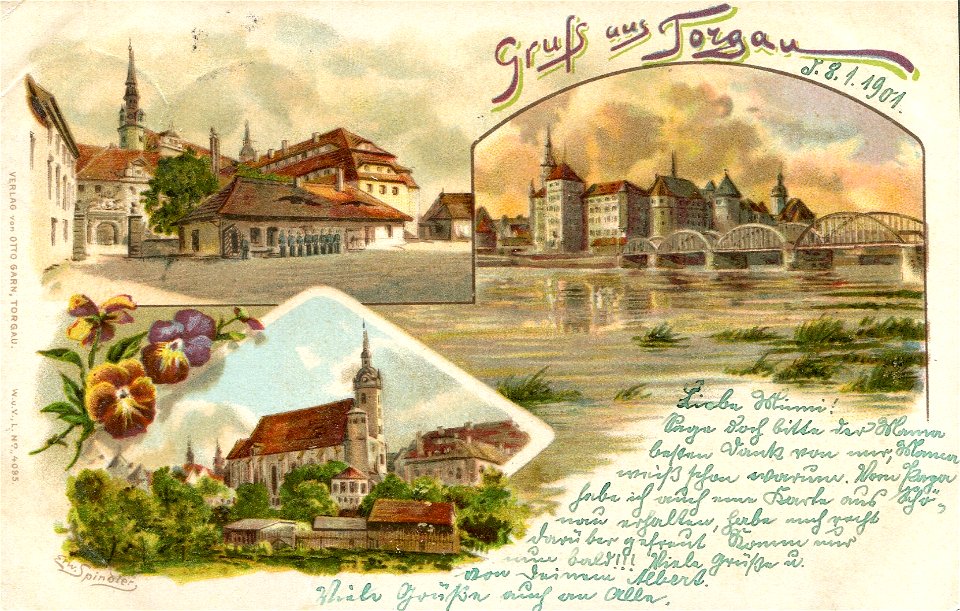 Gruß aus Torgau
T. 8.1.1901.
VERLAG von OTTO GARN, TORGAU.
W.u.V.L. No. 4085
Liebe Mimi!
Sage doch bitte der Mama
besten Dank von mir, Mama
weiß schon warum. Vom Papa
habe ich auch eine Karte aus Schö-
nau erhalten, habe mich recht
darüber gefreut. Komm nur
nun bald!!! Viele Grüße u.
von Deinem Albert.
Viele Grüße auch an Alle.
Erw. Spindler